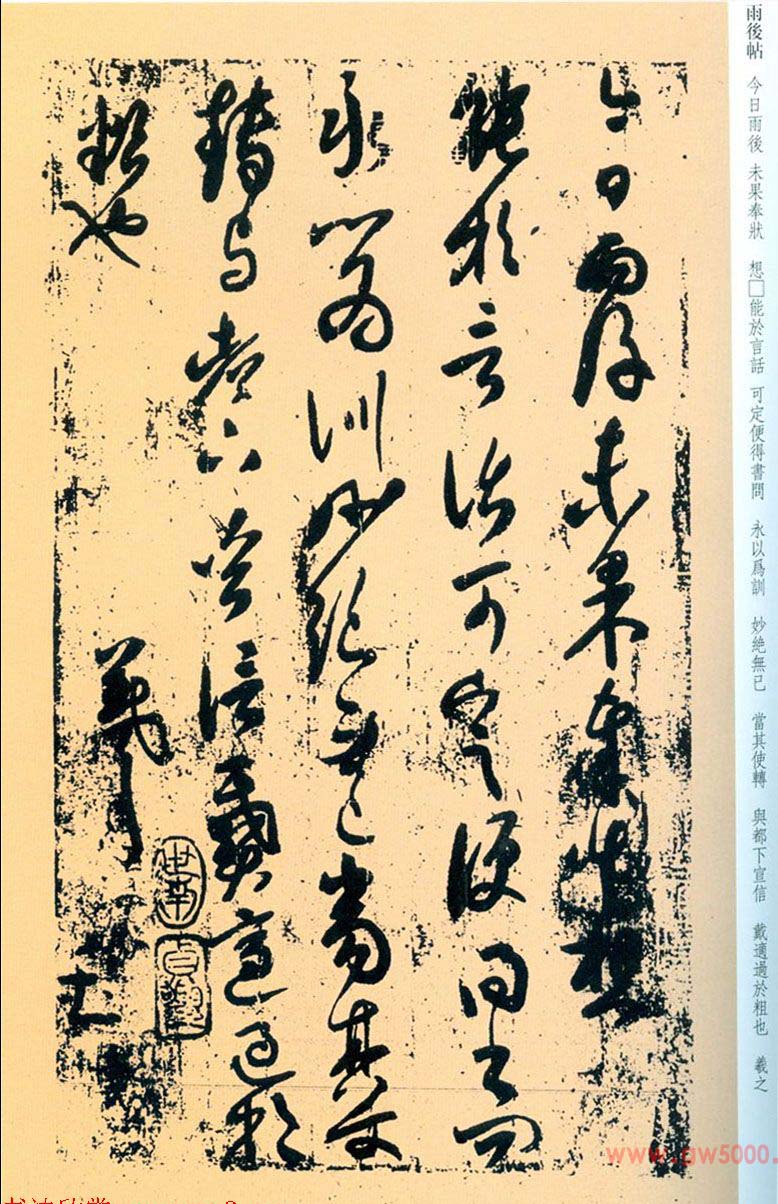 雨後帖 今日雨後 未果奉狀 想□能於言話 可定便得書問 永以爲訓 妙絕無已 當其使轉 與都下宣信 戴適過於粗也 羲之
今日雨後未果奉狀想
能於言話可定便得書問
永以爲訓妙絕無已當其使
轉與都下宣信戴適過於
粗也 羲之
貞觀
www.gw5000.